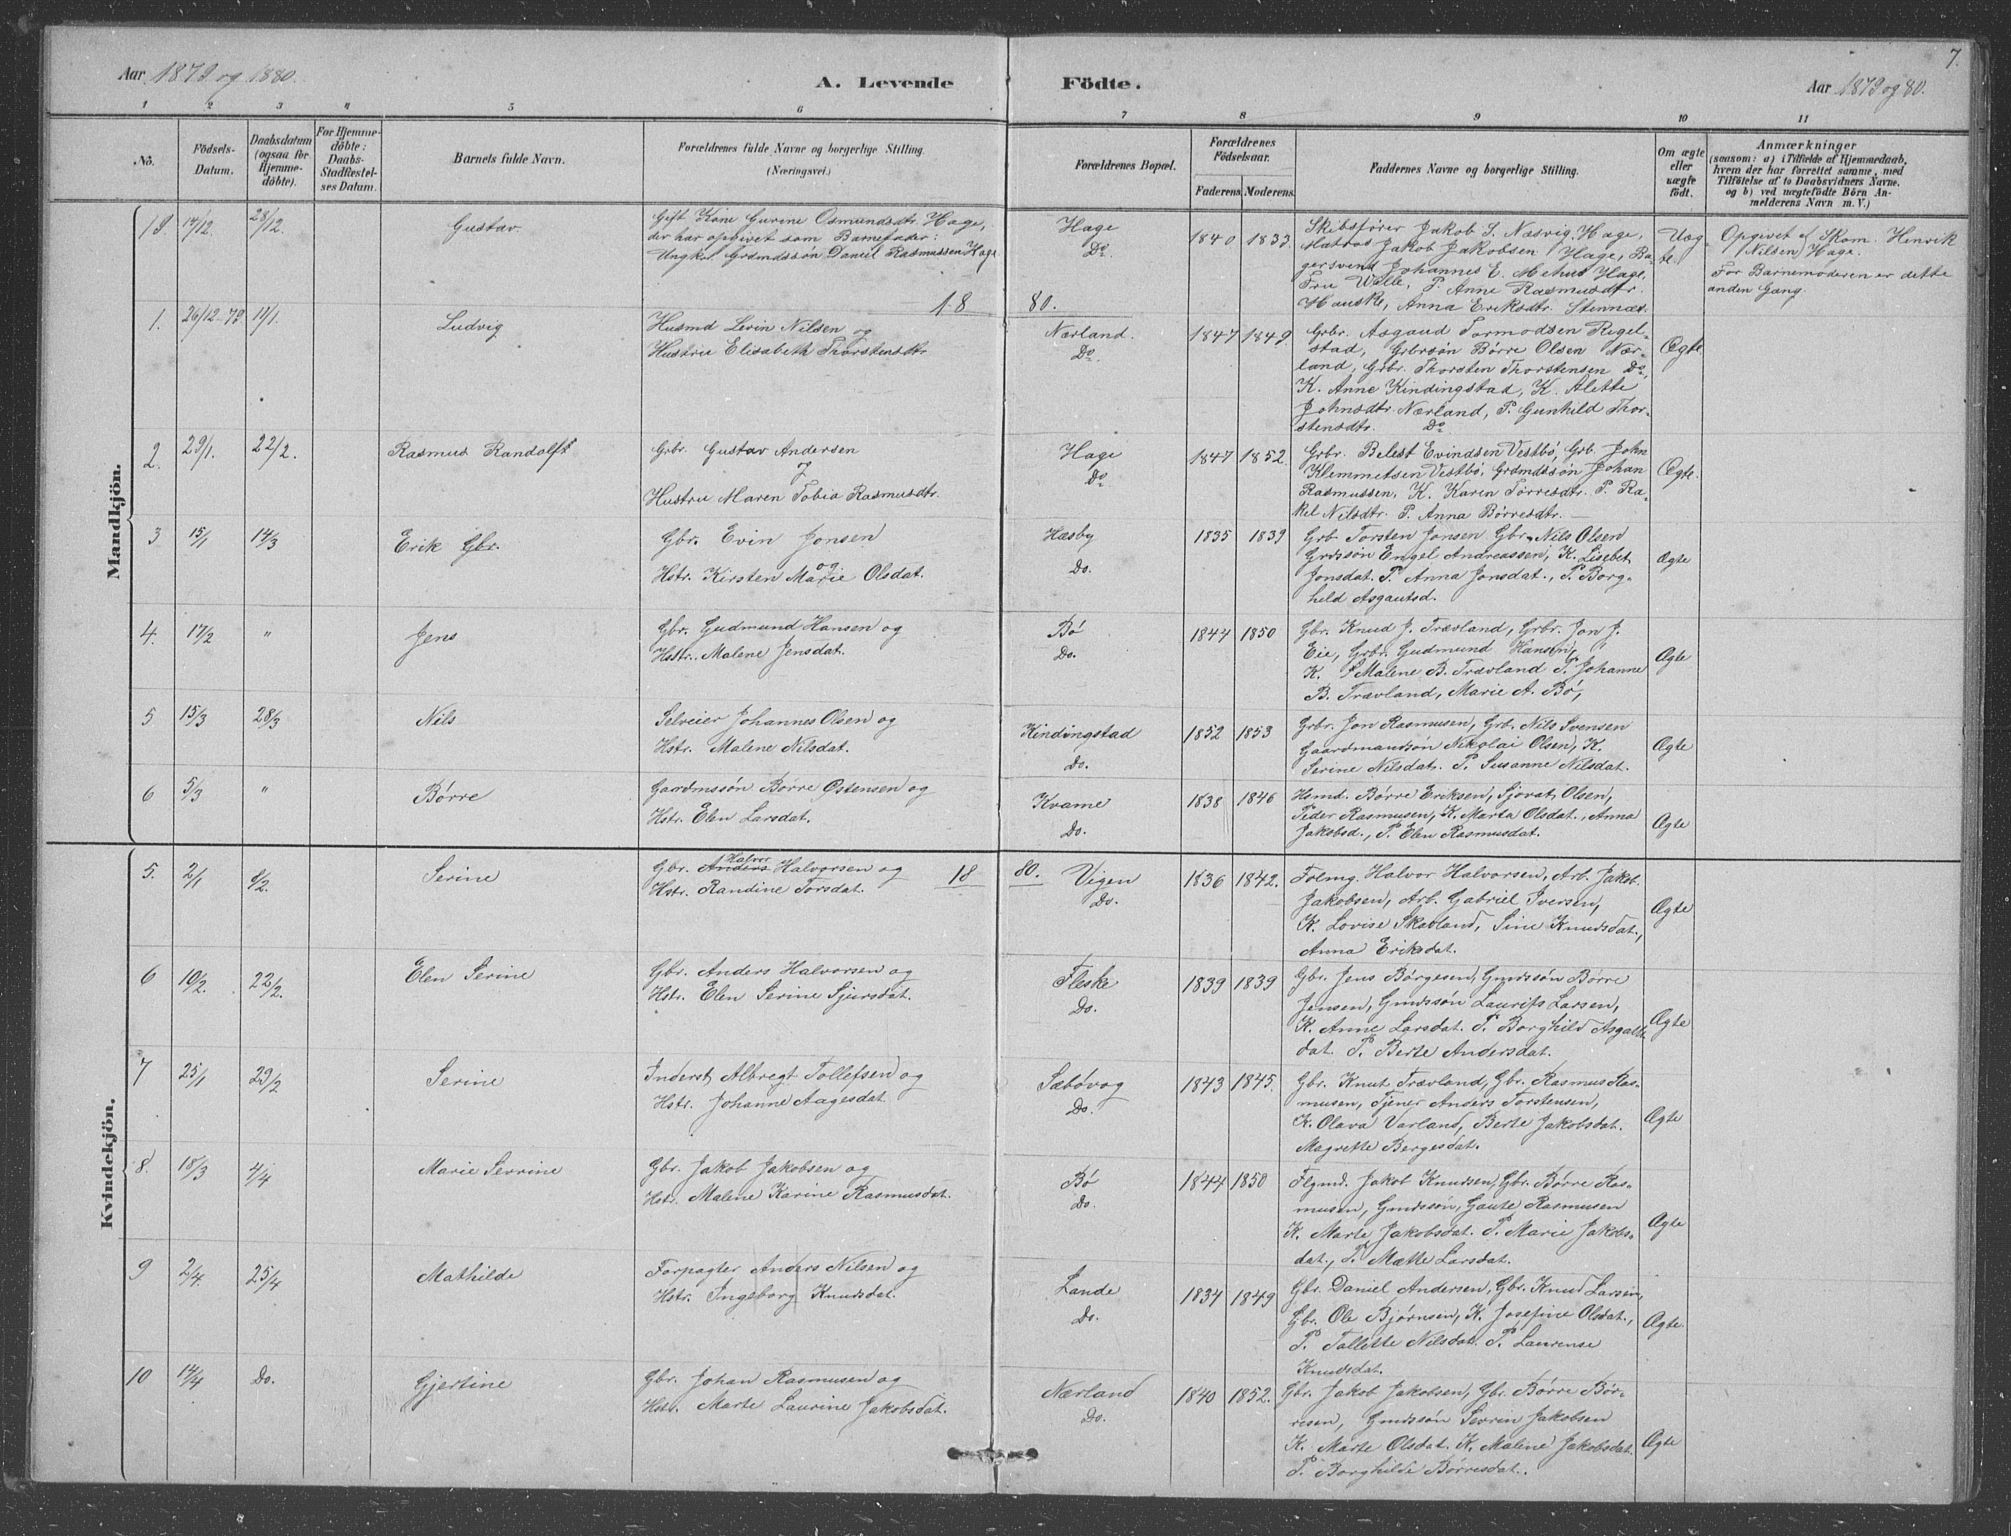 7.
Aar 1879 og 1880.
A. Levende
Födte.
Aar 1879 og 80.
1 2 3 4 5 6 7 8 9 10 11
No.
Födsels-
Datum.
Daabsdatum
(ogsaa for
Hjemme-
döbte).
For Hjemme-
döbte:
Daabs-
Stadfæstel-
ses Datum.
Barnets fulde Navn.
Forældrenes fulde Navne og borgerlige Stilling.
(Næringsvei.)
Forældrenes Bopæl.
Forældrenes
Födselsaar.
Faderens
Moderens.
Faddernes Navne og borgerlige Stilling.
Om ægte
eller
uægte
födt.
Anmærkninger
(saasom: a) i Tilfælde af Hjemmedaab,
hvem der har forrettet samme, med
Tilföielse af to Daabsvidners Navne.
og b) ved uægtefödte Börn An-
melderens Navn m. V.)
Mandkjön.
19. 14/12. 28/12. Gustav.
Gift Kone Gurine Osmundsdtr. Hage,
der har opgivet som Barnefader:
Ungkarl Grdmdssøn Daniel Rasmussen Hage
Hage
Do.
1840 1833.
Skibsfører Jakob S. Næsvig, Hage,
Matros Jakob Jakobsen Hage, Ba-
gersvend Johannes E. Mehus Hage,
Fru Wille, P. Anne Rasmusdtr.
Hauske, Anna Eriksdtr. Stennæs.
Uæg-
te.
Opgivet af Skom. Henrik
(Nilsen) Hage.
For Barnemoderen er dette
anden Gang.
18 80.
1. 26/12-79 11/1. Ludvig
Husmd Levin Nilsen og
Hustru Elisabeth Thorstensdtr
Nærland.
Do.
1847 1849.
Grbr. Asgaud Tormodsen Regel-
stad, Grbrsøn Børre Olsen Nær-
land, Grbr. Thorsten Thorstensen Do,
K. Anne Kindingstad, K. Alette
Johnsdtr. Nærland, P. Gunhild Thor-
stensdtr. Do
Ægte
2. 29/1. 22/2. Rasmus Randolft
Grbr. Gustav Andersen
og
Hustru Maren Tobia Rasmusdtr.
Hage
Do.
1847 1852.
Grbr. Belest Evindsen Vestbø, Grb. John
Klemmetsen Vestbø, Grdmdssøn Johan
Rasmussen, K. Karen Torresdtr. P. Ra-
kel Nilsdtr. P. Anna Børresdtr.
Ægte.
3 15/1 14/3 Erik Gbr.
Gbr. Evin Jonsen
og
Hstr. Kirsten Marie Olsdat.
Hæsby
Do.
1835 1839
Grb Torsten Jonsen Gbr. Nils Olsen
Grdssøn Engel Andreassen, K. Lisebet
Jonsdat. P. Anna Jonsdat., P. Borg-
hild Asgautsd.
Ægte
4. 17/2 " Jens
Gbr. Gudmund Hansen og
Hstr. Malene Jensdat.
Bø
Do.
1844 1850
Gbr. Knud J. Trævland, Grbr. Jon J.
Eie, Grbr. Gudmund Hansen,
K. Malene B. Trævland P. Johanne
B. Trævland, Marie A. Bø,
Ægte
5 15/3 28/3 Nils
Selveier Johannes Olsen og
Hstr. Malene Nilsdat.
Kindingstad
Do.
1852 1853
Grbr. Jon Rasmusen, Grb. Nils Svensen
Gaardmandsøn Nikolai Olsen, K.
Serine Nilsdat. P. Susanne Nilsdat.
Ægte
6 5/3 " Børre
Gaardmssøn Børre Østensen og
Hstr. Elen Larsdat.
Kvame
Do.
1838 1846
Hsmd. Børre Eriksen, Sjovat Olsen,
Peder Rasmusen, K. Marta Olsdat., Anna
Jakobsd., P. Elen Rasmusdat.
Ægte
Kvindekjön.
5. 2/1 8/2. Serine
Halvor
Gbr. Anders Halvorsen og
Hstr. Randine Torsdat.
18 80.
Vigen
Do.
1836 1842.
Folmg. Halvor Halvorsen, Arb. Jakob
Jakobsen, Arb. Gabriel Iversen,
K. Lovise Skavland, Sine Knudsdat.,
Anna Eriksdat.
Ægte
6 10/2. 22/2. Elen Serine
Gbr. Anders Halvorsen og
Hstr. Elen Serine Sjursdat.
Fleske
Do.
1839 1839
Gbr. Jens Børgesen, Gmdssøn Børre
Jensen, Gmdssøn Laurits Larsen,
K. Anne Larsdat. P. Borghild Asgauts-
dat. P. Berte Andersdat.
Ægte
7 25/1 29/2 Serine
Inderst Albregt Tollefsen og
Hstr. Johanne Aagesdat.
Sæbøvog
Do.
1843 1845.
Gbr. Knut Trævland, Gbr. Rasmus Ras-
musen, Tjener Anders Torstensen,
K. Olava Varland, Berte Jakobsdat.
Magrette Bergesdat.
Ægte
8. 18/3 4/4 Marie Sevrine
Gbr. Jakob Jakobsen og
Hstr. Malene Karine Rasmusdat.
Bø
Do.
1844 1850
Flgmd. Jakob Knudsen, Gbr. Børre Ras-
musen, Gmdssøn, Gaute Rasmusen
K. Marte Jakobsdat. P. Marie Jakobs-
dat., P. Mætte Larsdat.
Ægte
9 2/4. 25/4 Mathilde
Forpagter Anders Nilsen og
Hstr. Ingeborg Knudsdat.
Lande
Do.
1834 1849
Gbr. Daniel Andersen, Gbr. Knud Larsen,
Gbr. Ole Bjørnsen, K. Josefine Olsdat.,
P. Tallette Nilsdat. P. Laurense
Knudsdat.
Ægte.
10 14/4 Do. Gjertine
Gbr. Johan Rasmusen og
Hstr. Marte Laurine Jakobsdat.
Nærland
Do.
1840 1852.
Gbr. Jakob Jakobsen, Gbr. Børre Bør-
resen, Gmdssøn Sevrin Jakobsen
K. Marte Olsdat. K. Maline Jakobsdat.
P. Borghilde Børresdat.
Ægte